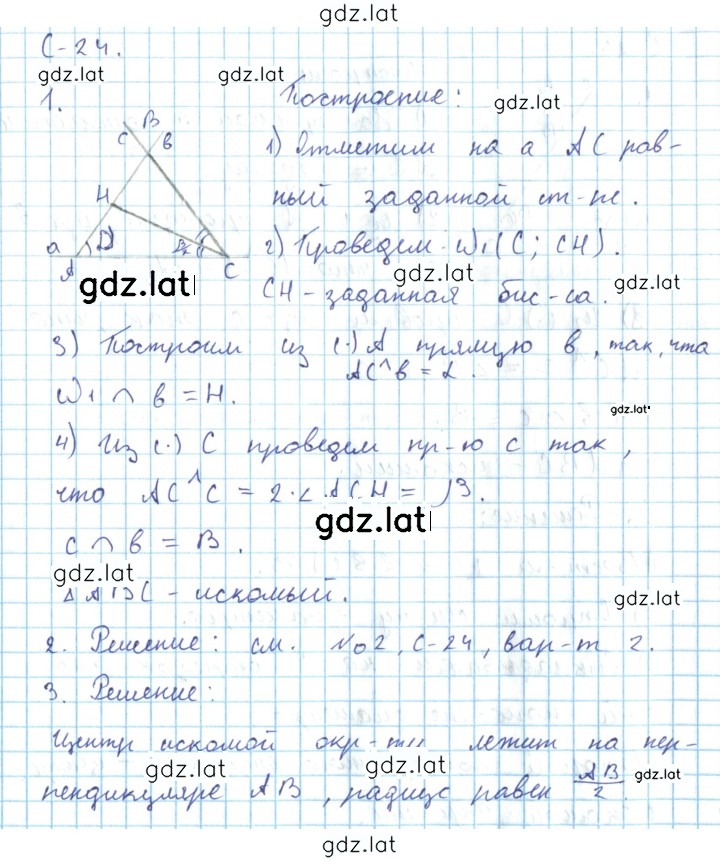 gdz.lat
С-24.
gdz.lat gdz.lat
1. Построение: gdz.lat
B
c b
1) Отметим на a AC рав-
H
ный заданной ст-не.
a
2) Проведем w₁(C; CH).
A C
gdz.lat gdz.lat
CH - заданная бис-са. gdz.lat
3) Построим из (·) A прямую b, так, что
AC^b = α.
w₁ ∩ b = H.
gdz.lat
4) Из (·) C проведем пр-ю c так,
что AC^c = 2·∠ACH = β.
gdz.lat
c ∩ b = B.
gdz.lat
Δ ABC - искомый.
gdz.lat
2. Решение: см. №2, С-24, вар-т 2.
3. Решение:
Центр искомой окр-ти лежит на пер-
gdz.lat gdz.lat
пендикуляре AB, радиус равен AB/2. gdz.lat
gdz.lat